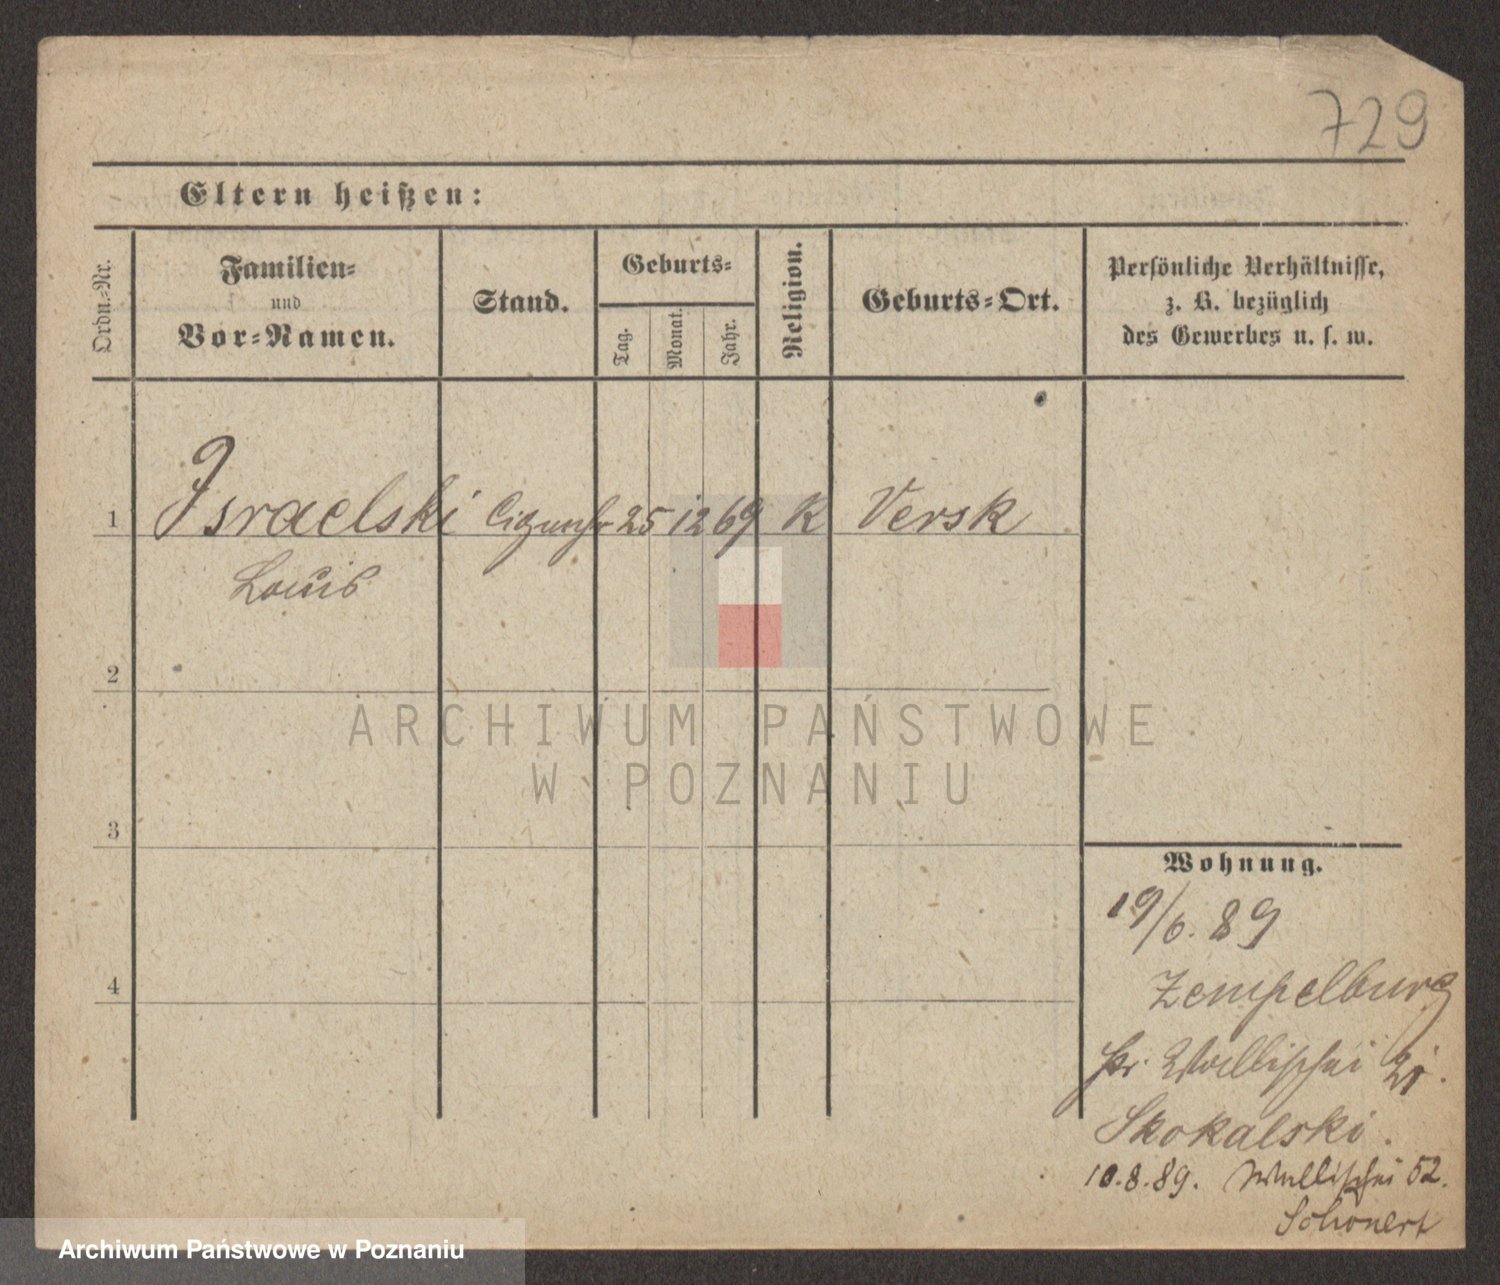 729
Eltern heißen:
Ordn.-Nr.
Familien-
und
Vor-Namen.
Stand.
Geburts-
Tag.
Monat.
Jahr.
Religion.
Geburts-Ort.
Persönliche Verhältnisse,
z. B. bezüglich
des Gewerbes u. s. w.
1 Israelski 25 12 69 K Versk
Louis
2
3
4
Wohnung.
19/6. 89
Zempelburg
hr. Wallischei 21.
Skokalski.
10.8.89. Wallischei 52.
Schönert
ARCHIWUM PAŃSTWOWE
W POZNANIU
Archiwum Państwowe w Poznaniu